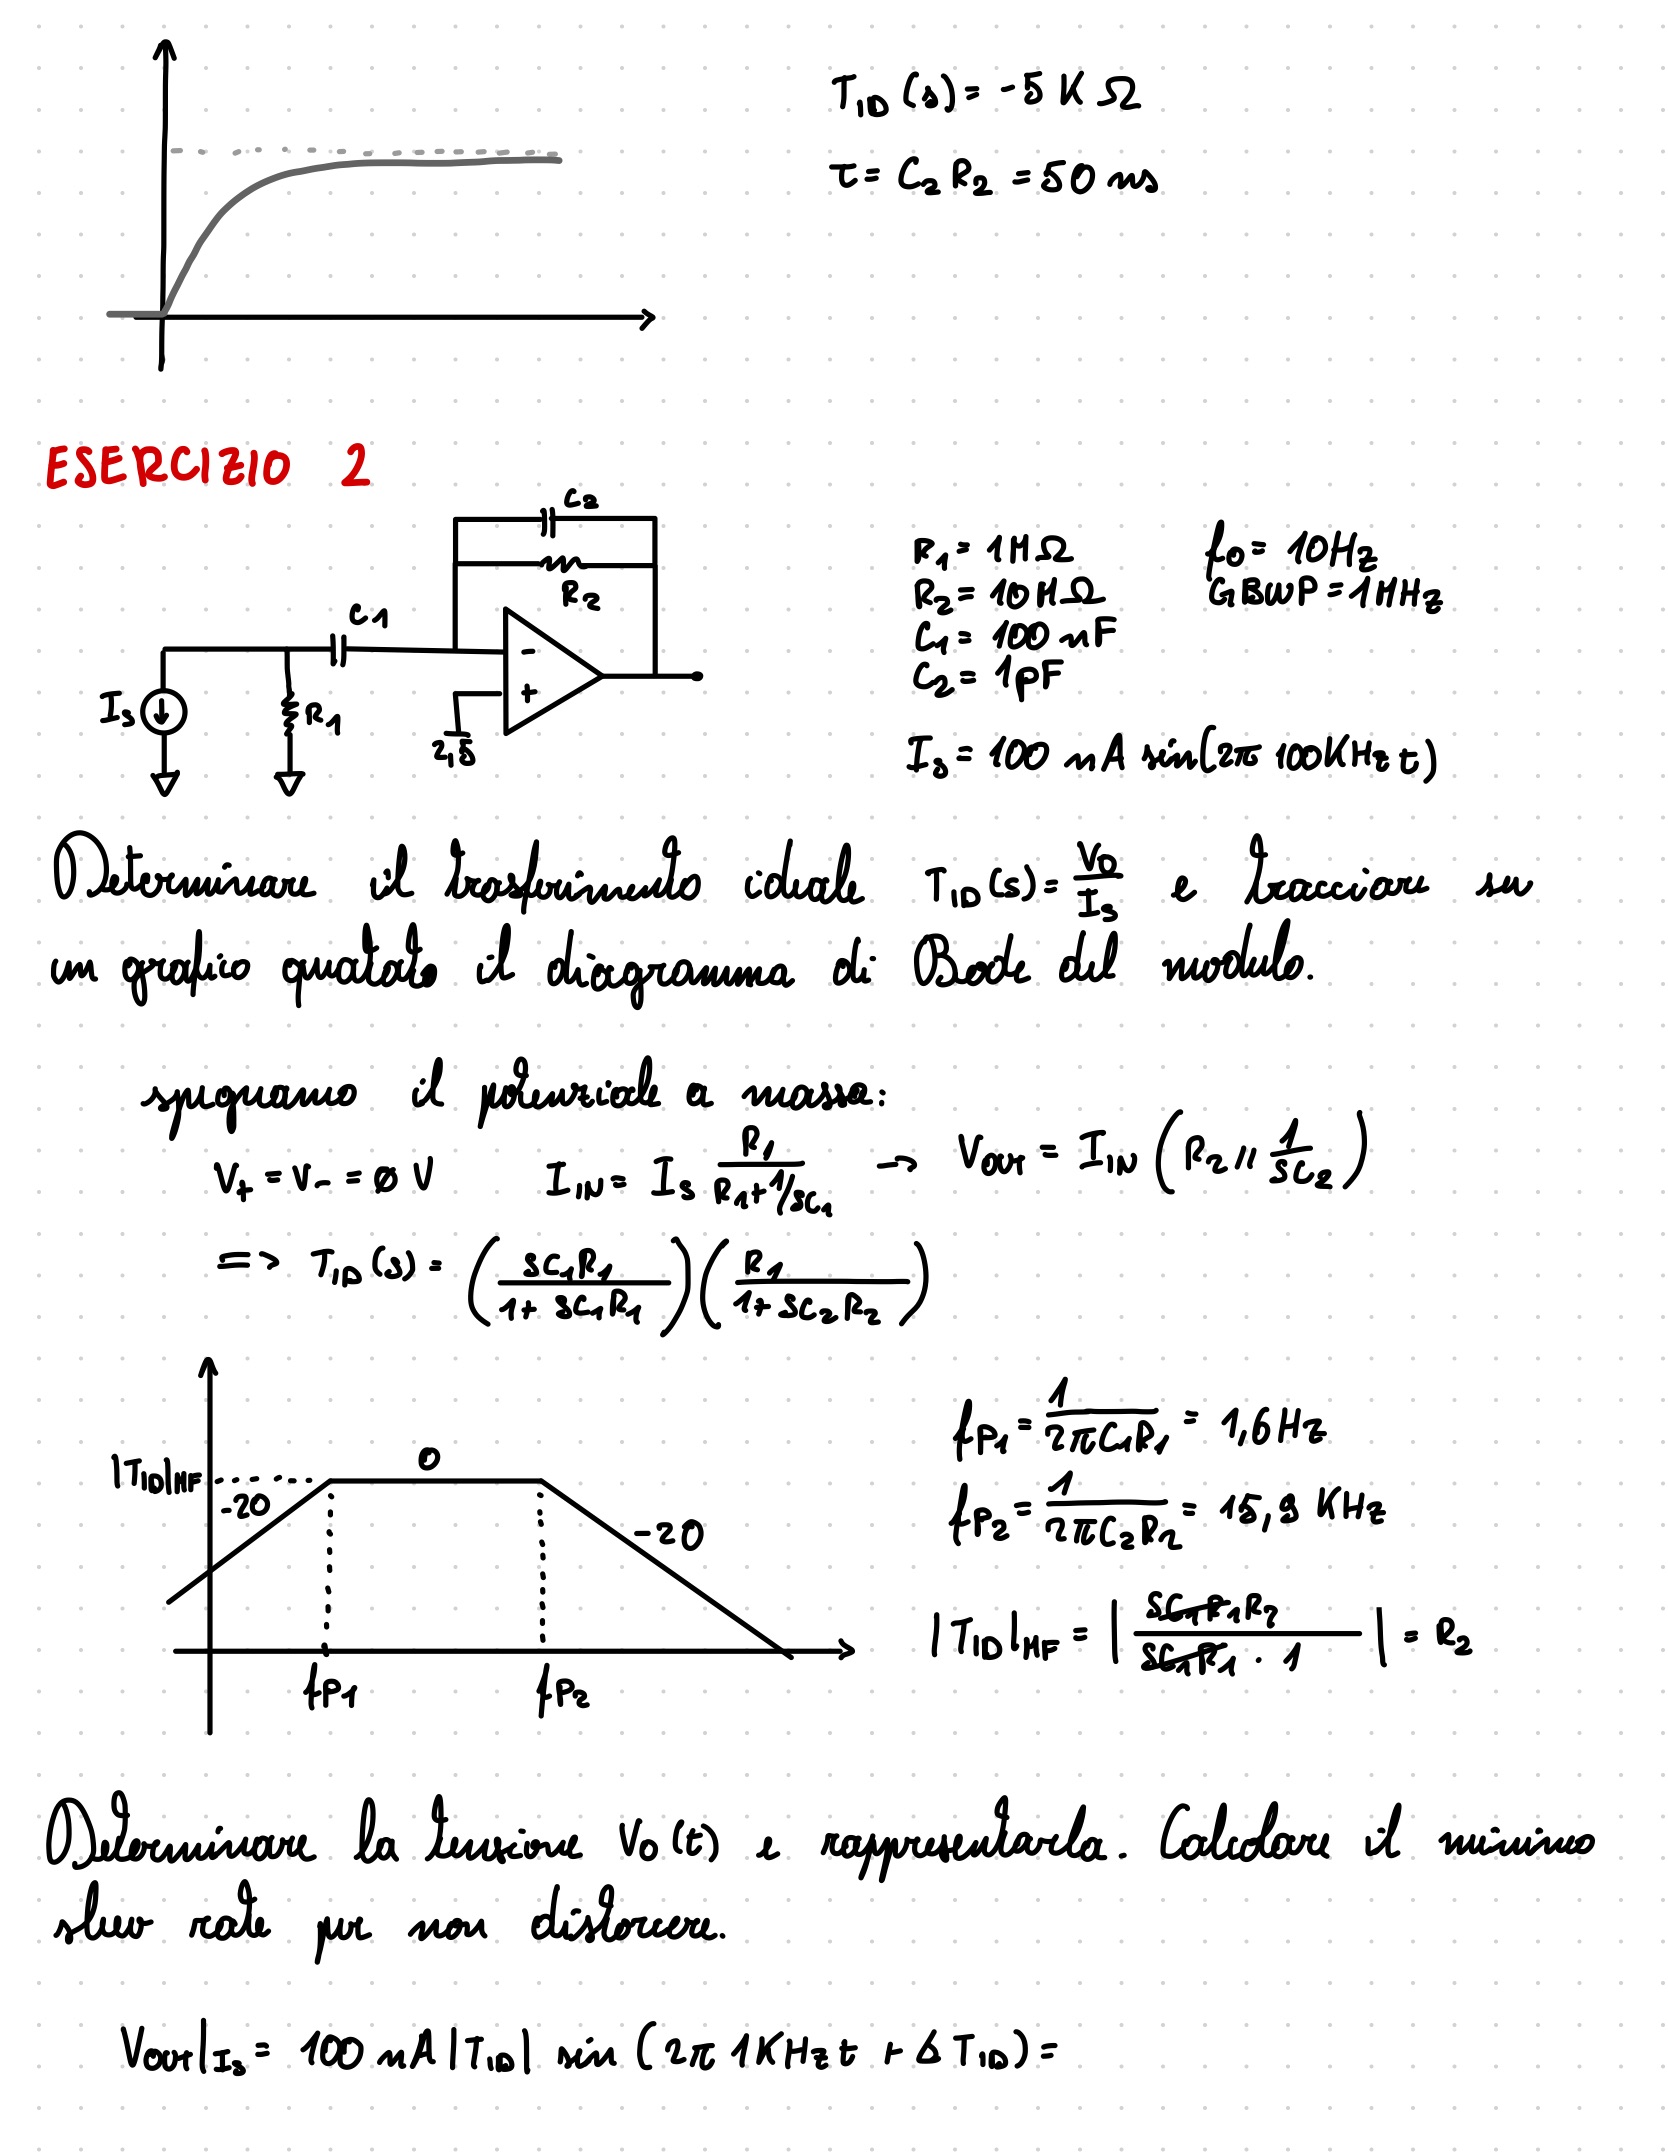 T_ID (s) = -5 K Ω
τ = C₂ R₂ = 50 ns
ESERCIZIO 2
C₂
R₂
C₁
Is
R₁
2,5
-
+
R₁ = 1MΩ
R₂ = 10MΩ
C₁ = 100 nF
C₂ = 1pF
f₀ = 10Hz
GBWP = 1MHz
Is = 100 nA sin(2π 100KHz t)
Determinare il trasferimento ideale T_ID(s) = V₀/Is e tracciare su
un grafico quotato il diagramma di Bode del modulo.
spegnamo il potenziale a massa:
V₊ = V₋ = ø V I_IN = Is R₁/(R₁+1/sC₁) → V_OUT = I_IN (R₂ // 1/sC₂)
=> T_ID(s) = (sC₁R₁/(1+ sC₁R₁)) (R₁/(1+ sC₂R₂))
|T_ID|_MF
-20
0
-20
f_P1
f_P2
f_P1 = 1/(2πC₁R₁) = 1,6Hz
f_P2 = 1/(2πC₂R₂) = 15,9 KHz
|T_ID|_MF = | sC₁R₁R₂/(sC₁R₁ · 1) | = R₂
Determinare la tensione V₀(t) e rappresentarla. Calcolare il minimo
slew rate per non distorcere.
V_OUT|Is = 100 nA |T_ID| sin (2π 1KHz t + ∡ T_ID) =